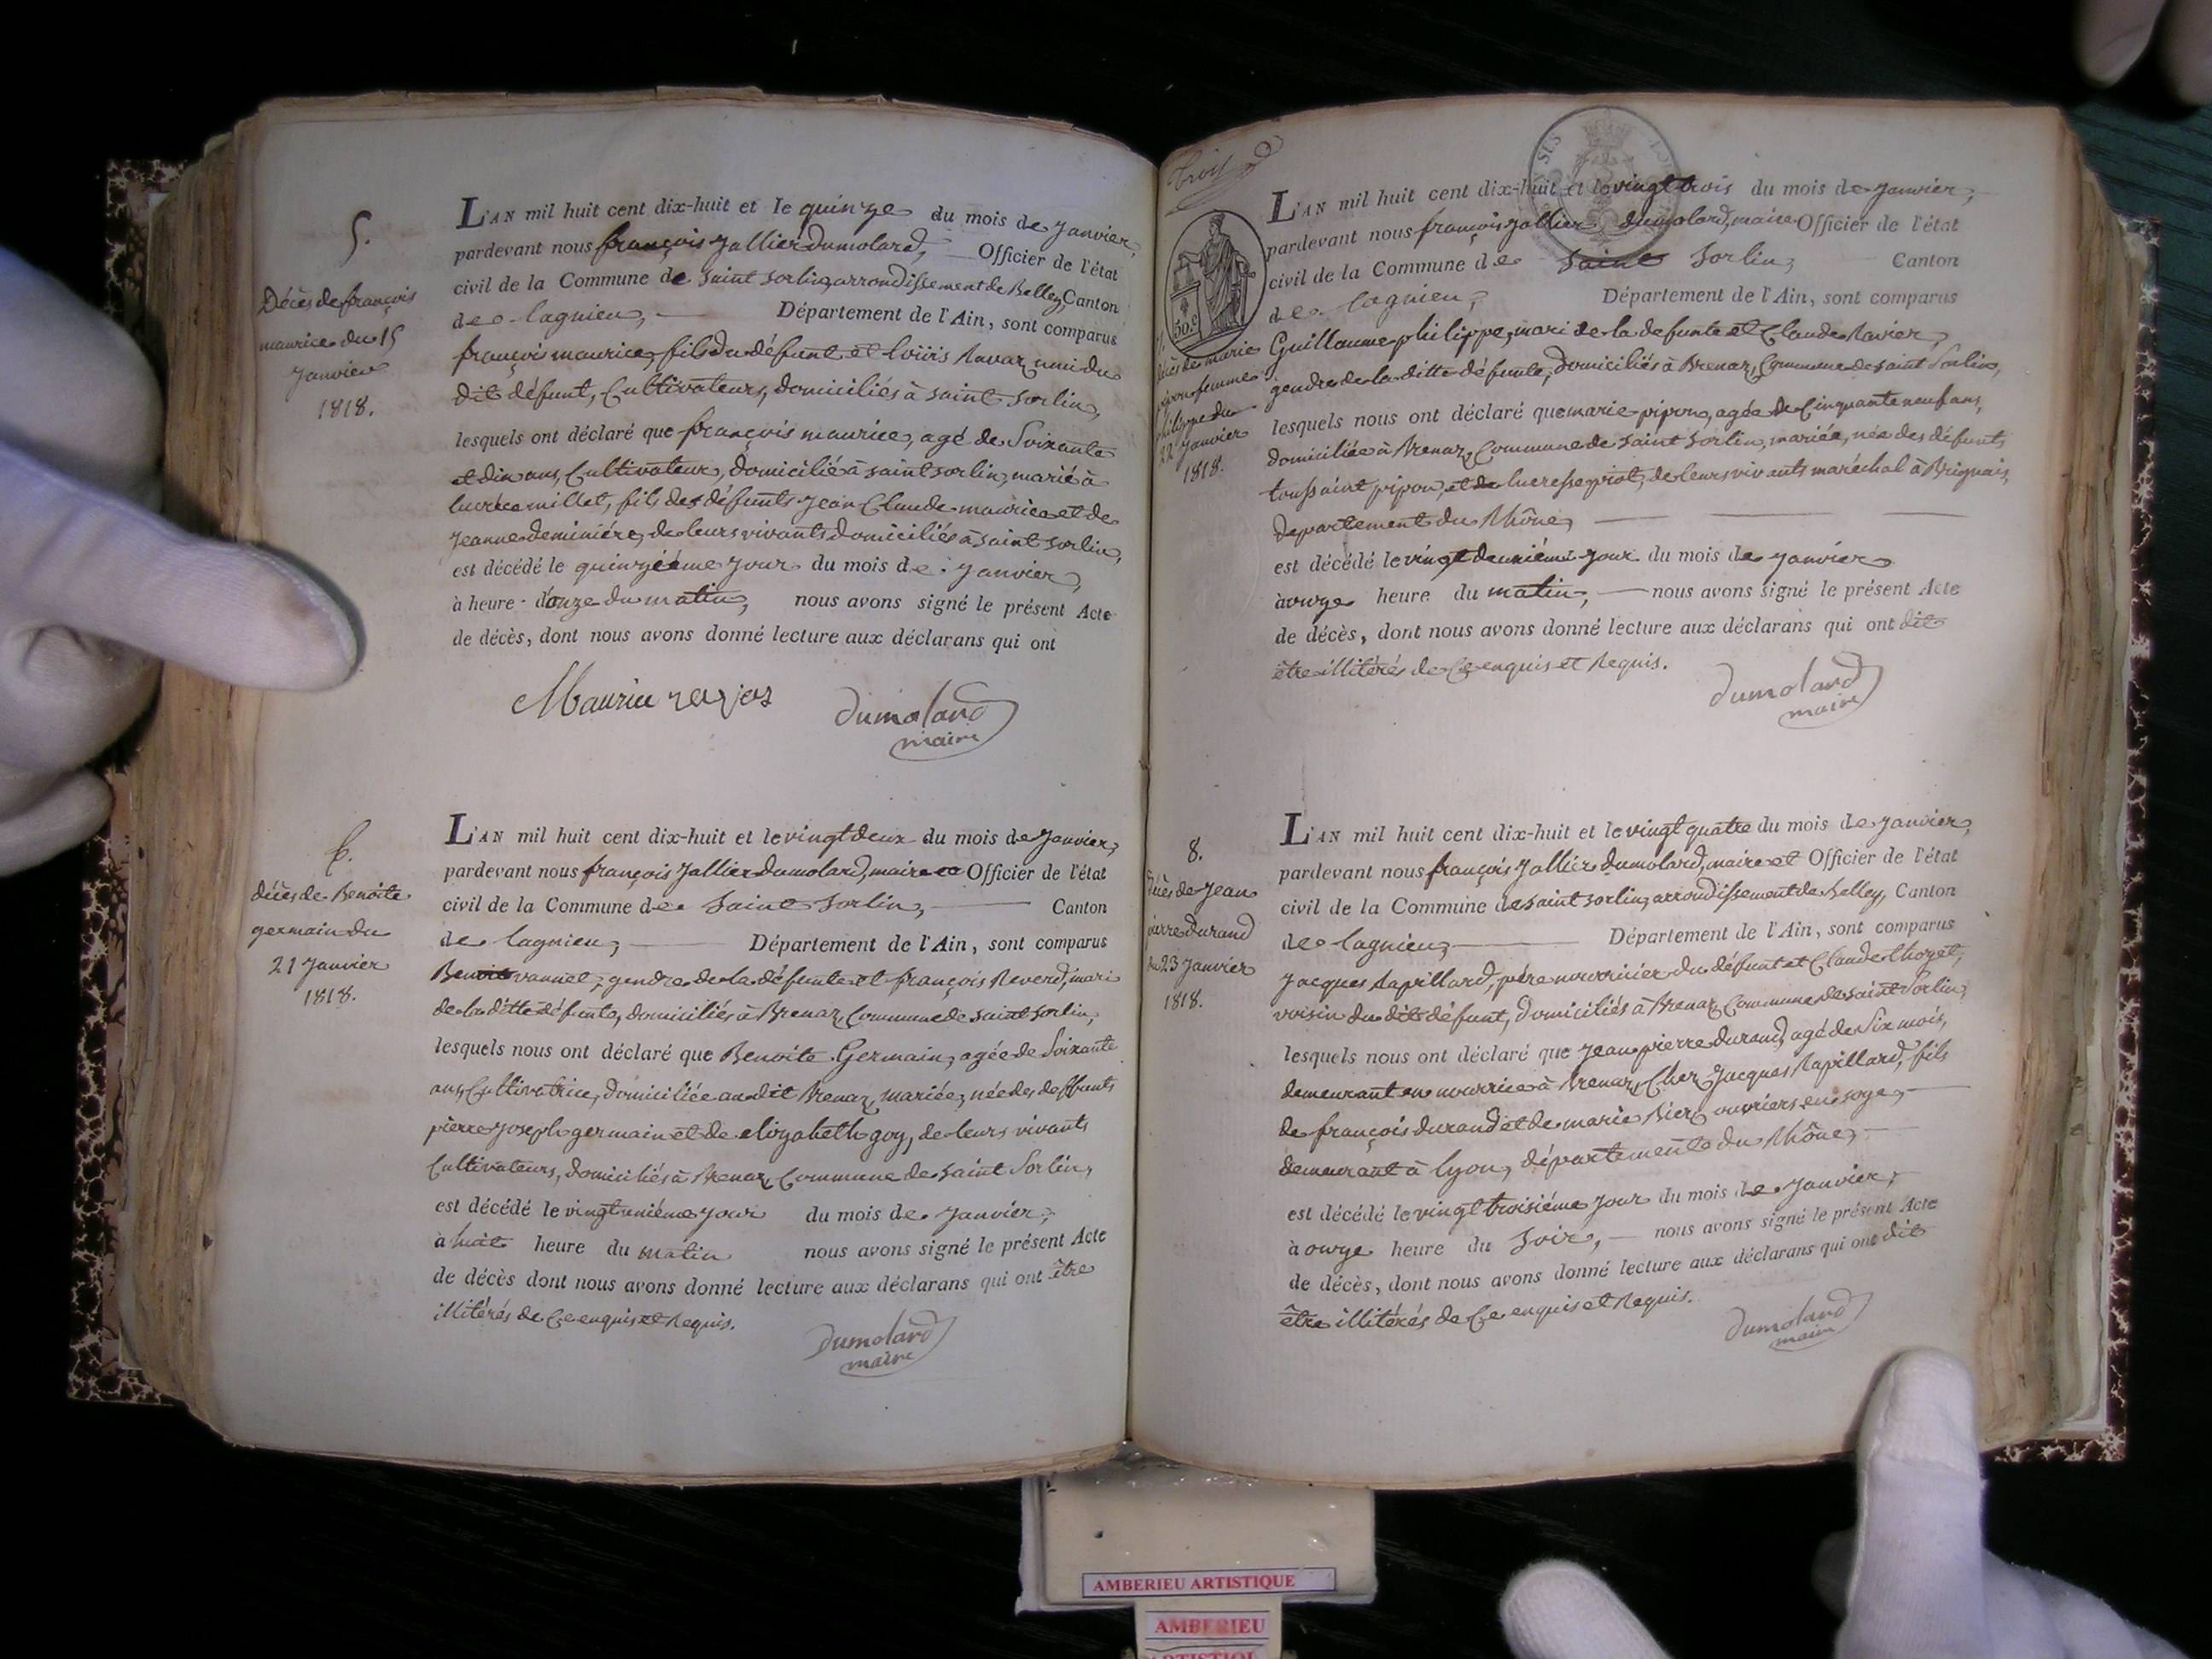 5.
Décès de françois
maurice du 15
Janvier
1818.
L'AN mil huit cent dix-huit et le quinze du mois de Janvier,
pardevant nous françois Jallier dumolard, Officier de l'état
civil de la Commune de saint sorlin, arrondissement de Belley, Canton
de lagnieu, Département de l'Ain, sont comparus
françois maurice, fils du défunt et loüis Ravaz, ami du
dit défunt, Cultivateurs, domiciliés à saint sorlin,
lesquels ont déclaré que françois maurice, agé de Soixante
et dix ans, Cultivateur, domicilié à saint sorlin, marié à
millet, fils des défunts Jean Claude maurice et de
Jeanne deminiére, de leurs vivants domiciliés à saint sorlin,
est décédé le quinziéme jour du mois de Janvier,
à heure d'onze du matin, nous avons signé le présent Acte
de décès, dont nous avons donné lecture aux déclarans qui ont
Maurice
dumolard
maire
6.
décès de Benoite
germain du
21 Janvier
1818.
L'AN mil huit cent dix-huit et le vingt deux du mois de Janvier,
pardevant nous françois Jallier dumolard, maire et Officier de l'état
civil de la Commune de Saint Sorlin, Canton
de lagnieu, Département de l'Ain, sont comparus
Benoit vannet, gendre de la défunte et françois Reverd, mari
de la ditte défunte, domiciliés à Brenaz, Commune de saint sorlin,
lesquels nous ont déclaré que Benoite Germain, agée de Soixante
ans, Cultivatrice, domiciliée audit Brenaz, mariée, née des deffunts
pierre Joseph germain et de elizabeth goy, de leurs vivants
Cultivateurs, domiciliés à Brenaz, Commune de saint Sorlin,
est décédé le vingt uniéme jour du mois de Janvier,
à huit heure du matin nous avons signé le présent Acte
de décès dont nous avons donné lecture aux déclarans qui ont être
illitérés de Ce enquis et Requis.
dumolard
maire
trois
50 c
décès de marie
pipon femme
philippe du
22 Janvier
1818.
L'AN mil huit cent dix-huit et le vingt trois du mois de Janvier,
pardevant nous françois Jallier dumolard, maire Officier de l'état
civil de la Commune de Saint Sorlin, Canton
de lagnieu, Département de l'Ain, sont comparus
Guillaume philippe, mari de la defunte et Claude Ravier,
gendre de la ditte défunte, domiciliés à Brenaz, Commune de saint Sorlin,
lesquels nous ont déclaré que marie pipon, agée de Cinquante neuf ans,
domiciliée à Brenaz, Commune de saint Sorlin, mariée, née des défunts
toussaint pipon, et de lucresse piot, de leurs vivants maréchal à Brignais,
departement du Rhône,
est décédé le vingt deuxiéme jour du mois de Janvier
à onze heure du matin, nous avons signé le présent Acte
de décès, dont nous avons donné lecture aux déclarans qui ont dit
être illitérés de Ce enquis et Requis.
dumolard
maire
8.
décès de Jean
pierre durand
du 23 Janvier
1818.
L'AN mil huit cent dix-huit et le vingt quatre du mois de Janvier,
pardevant nous françois Jallier dumolard, maire et Officier de l'état
civil de la Commune de saint sorlin, arrondissement de Belley, Canton
de lagnieu, Département de l'Ain, sont comparus
Jacques Rapillard, pére nourricier du défunt et Claude thozet,
voisin du dit défunt, domiciliés à Brenaz Commune de saint Sorlin,
lesquels nous ont déclaré que Jean pierre durand, agé de Six mois,
demeurant en nourrice à Brenaz, Chez Jacques Rapillard, fils
de françois durand et de marie Biez, ouvriers en soye,
demeurant à lyon, département du Rhône,
est décédé le vingt troisiéme jour du mois de Janvier,
à onze heure du Soir, nous avons signé le présent Acte
de décès, dont nous avons donné lecture aux déclarans qui ont dit
être illitérés de Ce enquis et Requis.
dumolard
maire
AMBERIEU ARTISTIQUE
AMBERIEU
ARTISTIQUE